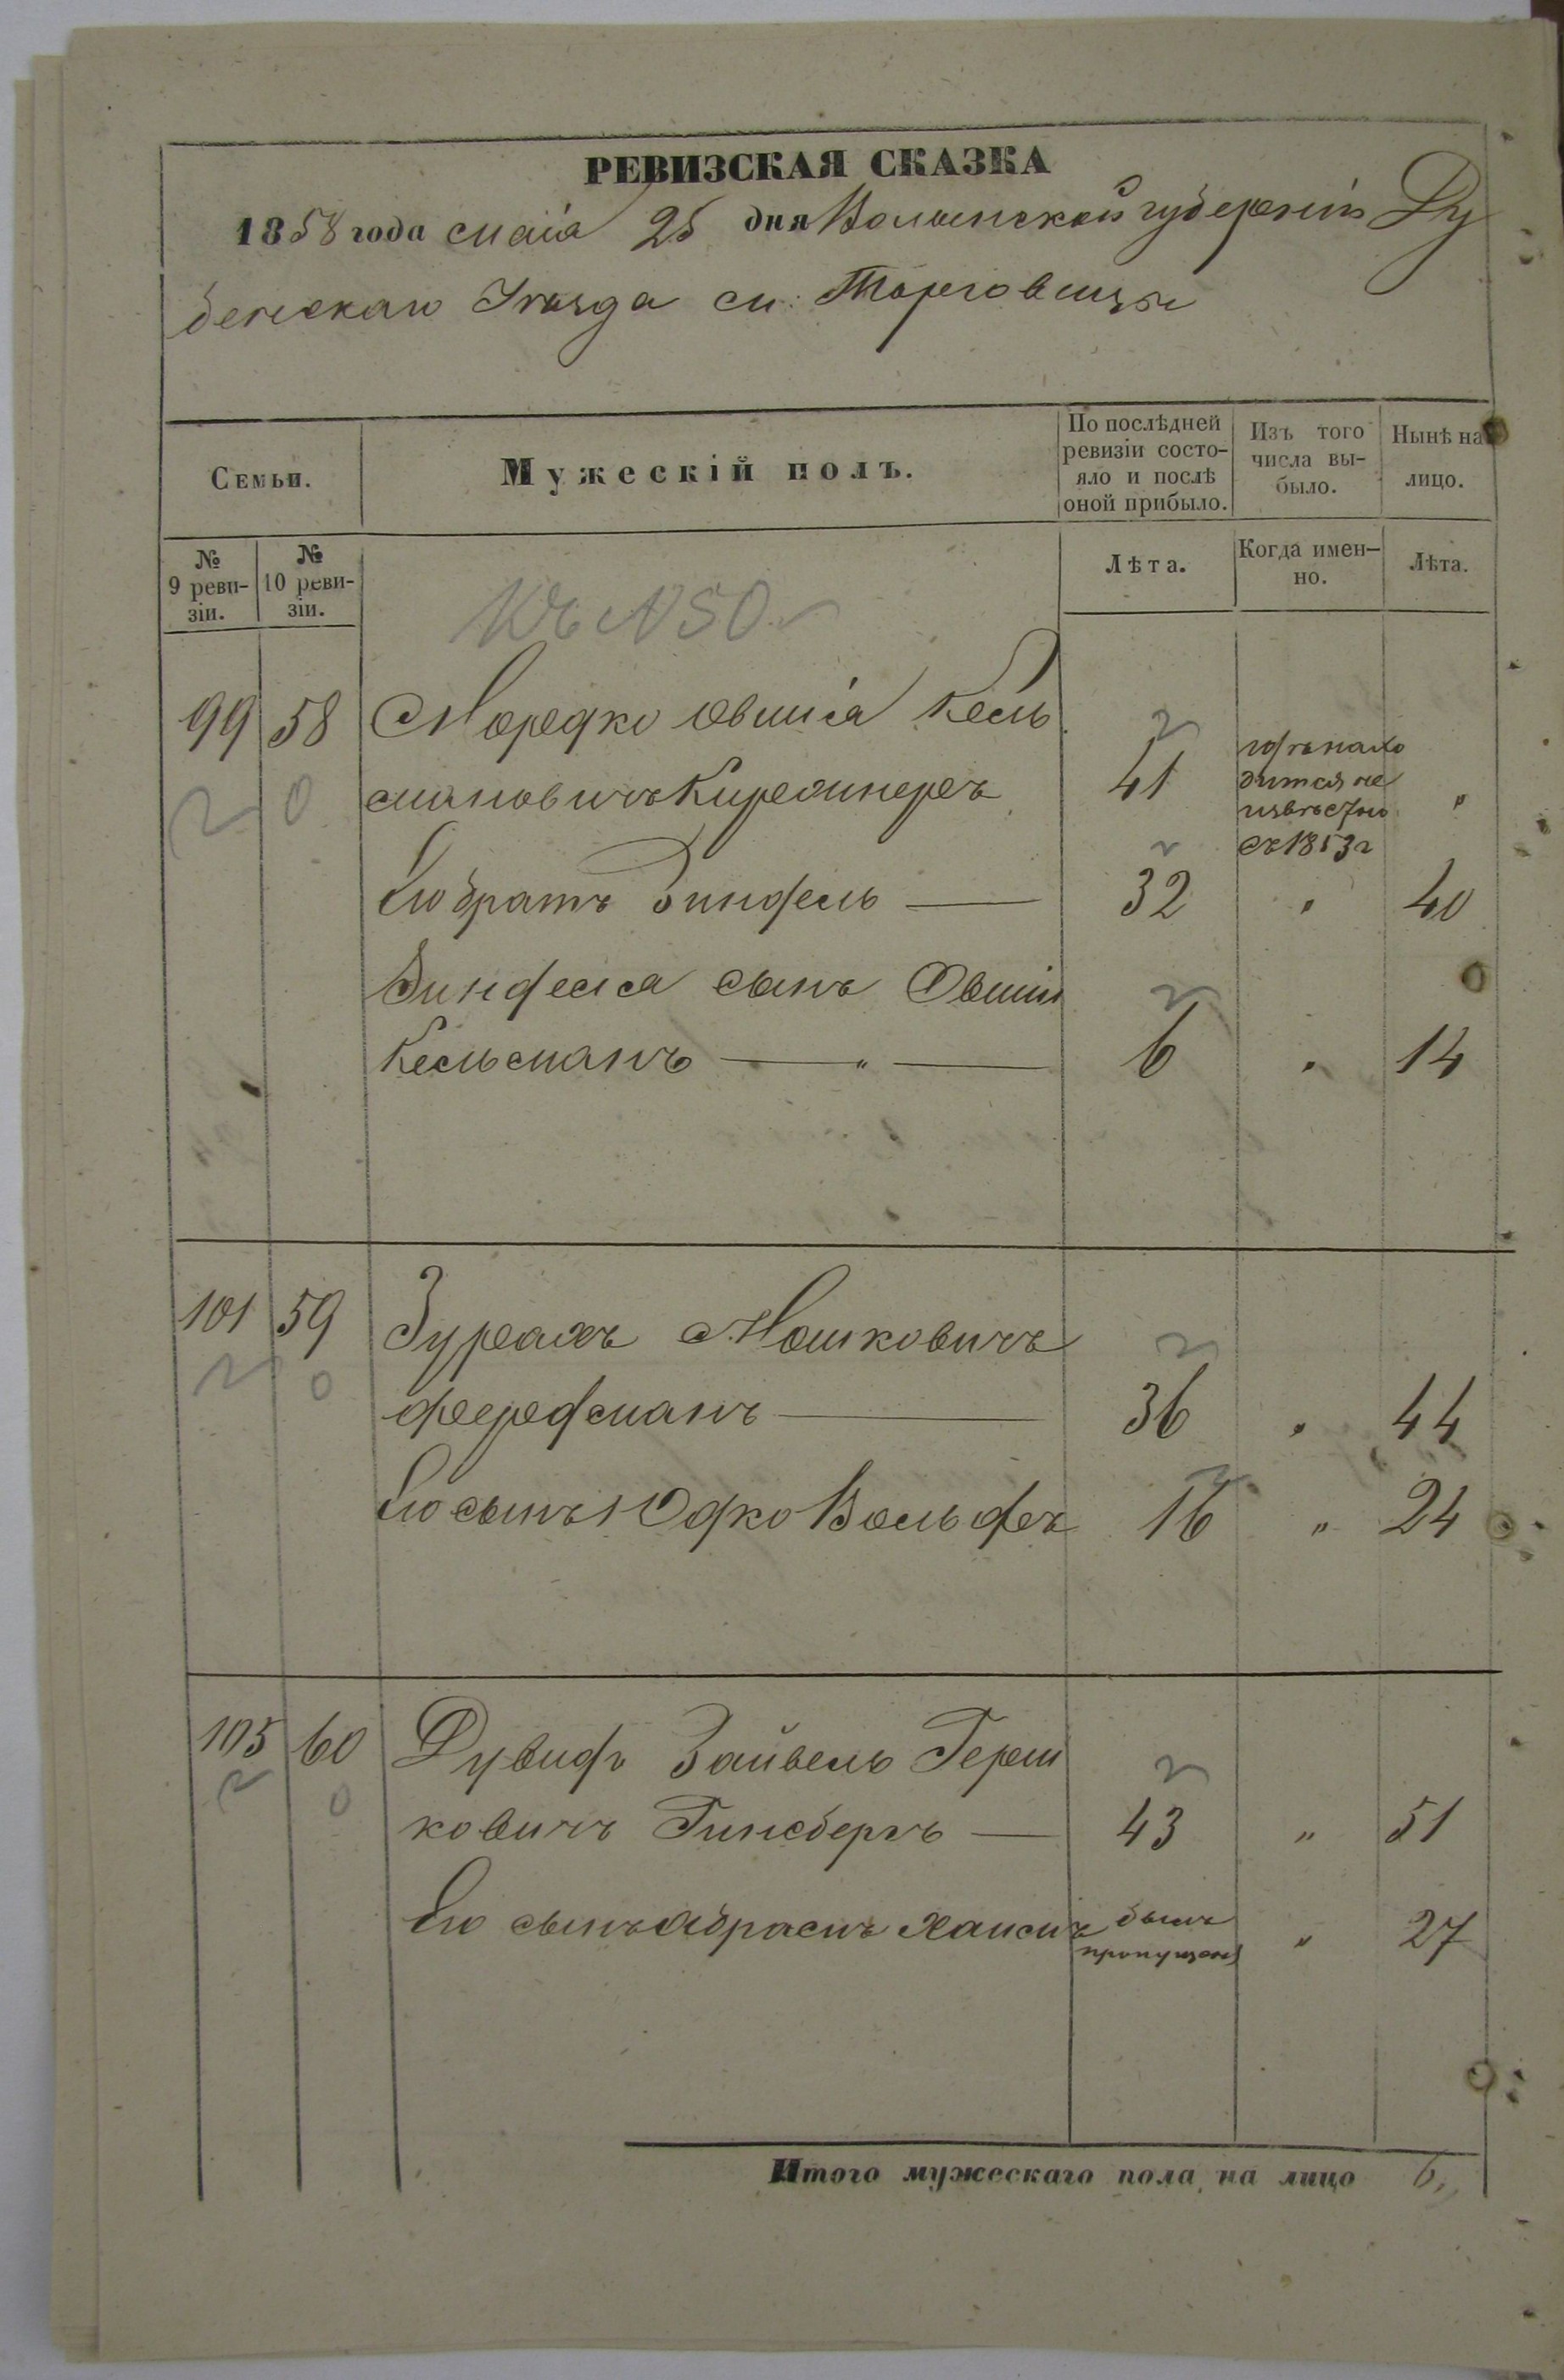 РЕВИЗСКАЯ СКАЗКА
1858 года маія 25 дня Волынской губерніи Ду
бенскаго Уѣзда м: Торговицы
Семьи.
Мужескій полъ.
По послѣдней ревизіи состо-
яло и послѣ
оной прибыло.
Изъ того
числа вы-
было.
Нынѣ на
лицо.
№
9 реви-
зіи.
№
10 реви-
зіи.
Лѣта.
Когда имен-
но.
Лѣта.
№ 50
99 58 Мордко Овшія Кель
мановичъ 41 "
гдѣ нахо
дится не
извѣстно
съ 1853 г
Его братъ Зиндель — 32 " 40
Зинделя сынъ Овшія
Кельманъ — " — 6 " 14
101 59 Зурахъ Мошковичъ
Фердманъ — 36 " 44
Его сынъ Юдко Вольфъ 16 " 24
105 60 Дувидъ Зайвель Герш
ковичъ Гинсбергъ — 43 " 51
Его сынъ Абрамъ Хаимъ былъ
пропущенъ " 27
Итого мужескаго пола на лицо 6,,